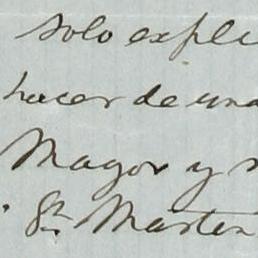 solo expli
hacer de una
Mayor y
Sr. Marten